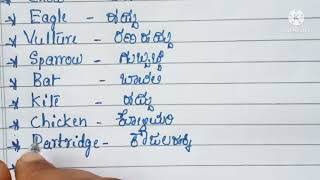 Eagle - ಹದ್ದು
Vulture - ರಣ ಹದ್ದು
Sparrow - ಗುಬ್ಬಚ್ಚಿ
Bat - ಬಾವಲಿ
Kite - ಹದ್ದು
Chicken - ಕೋಳಿಮರಿ
Partridge -